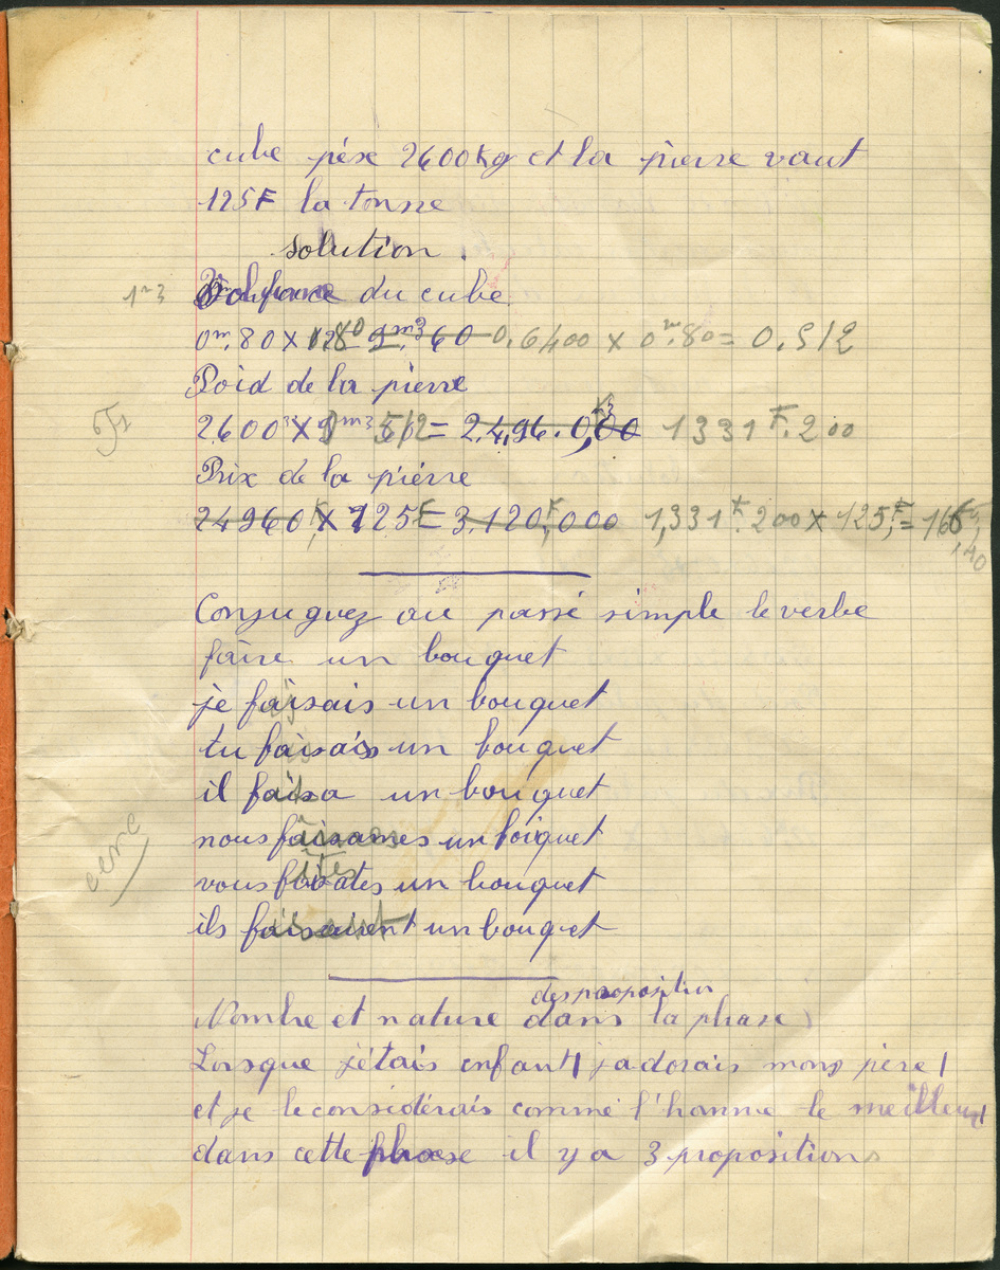 cube pèse 2600Kg et la pierre vaut
125F la tonne
solution.
1m3 du cube.
0m,80 x 0,6400 x 0m.80 = 0,512
Poid de la pierre
2600 x 512 = 2.496.0,00 1331F.200
Prix de la pierre
24960 x 125F = 3.120F,000 1,331F.200 x 125F =
Conjuguez au passé simple le verbe
faire un bouquet
je faisais un bouquet
tu faisais un bouquet
il faisa un bouquet
nous faisames un boiquet
vous faisates un bouquet
ils faisairent un bouquet
des proposition
Nombre et nature dans la phase
Lorsque j'étais enfant | j'adorais mons père |
et je le considérais comme l'homme le meilleur
dans cette phase il y a 3 propositions